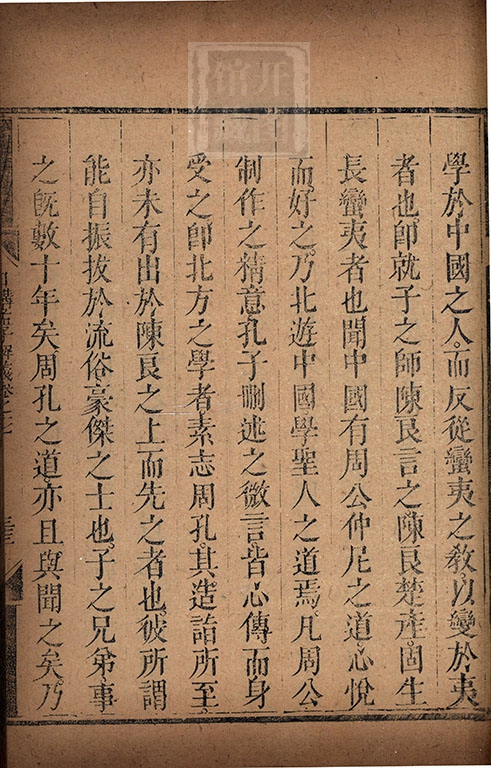 學於中國之人而反從蠻夷之敎以變於夷
者也卽就子之師陳良言之陳良楚產固生
長蠻夷者也聞中國有周公仲尼之道心悅
而好之乃北遊中國學聖人之道焉凡周公
制作之精意孔子刪述之微言皆心傳而身
受之卽北方之學者素志周孔其造詣所至
亦未有出於陳良之上而先之者也彼所謂
能自振拔於流俗豪傑之士也子之兄弟事
之旣數十年矣周孔之道亦且與聞之矣乃